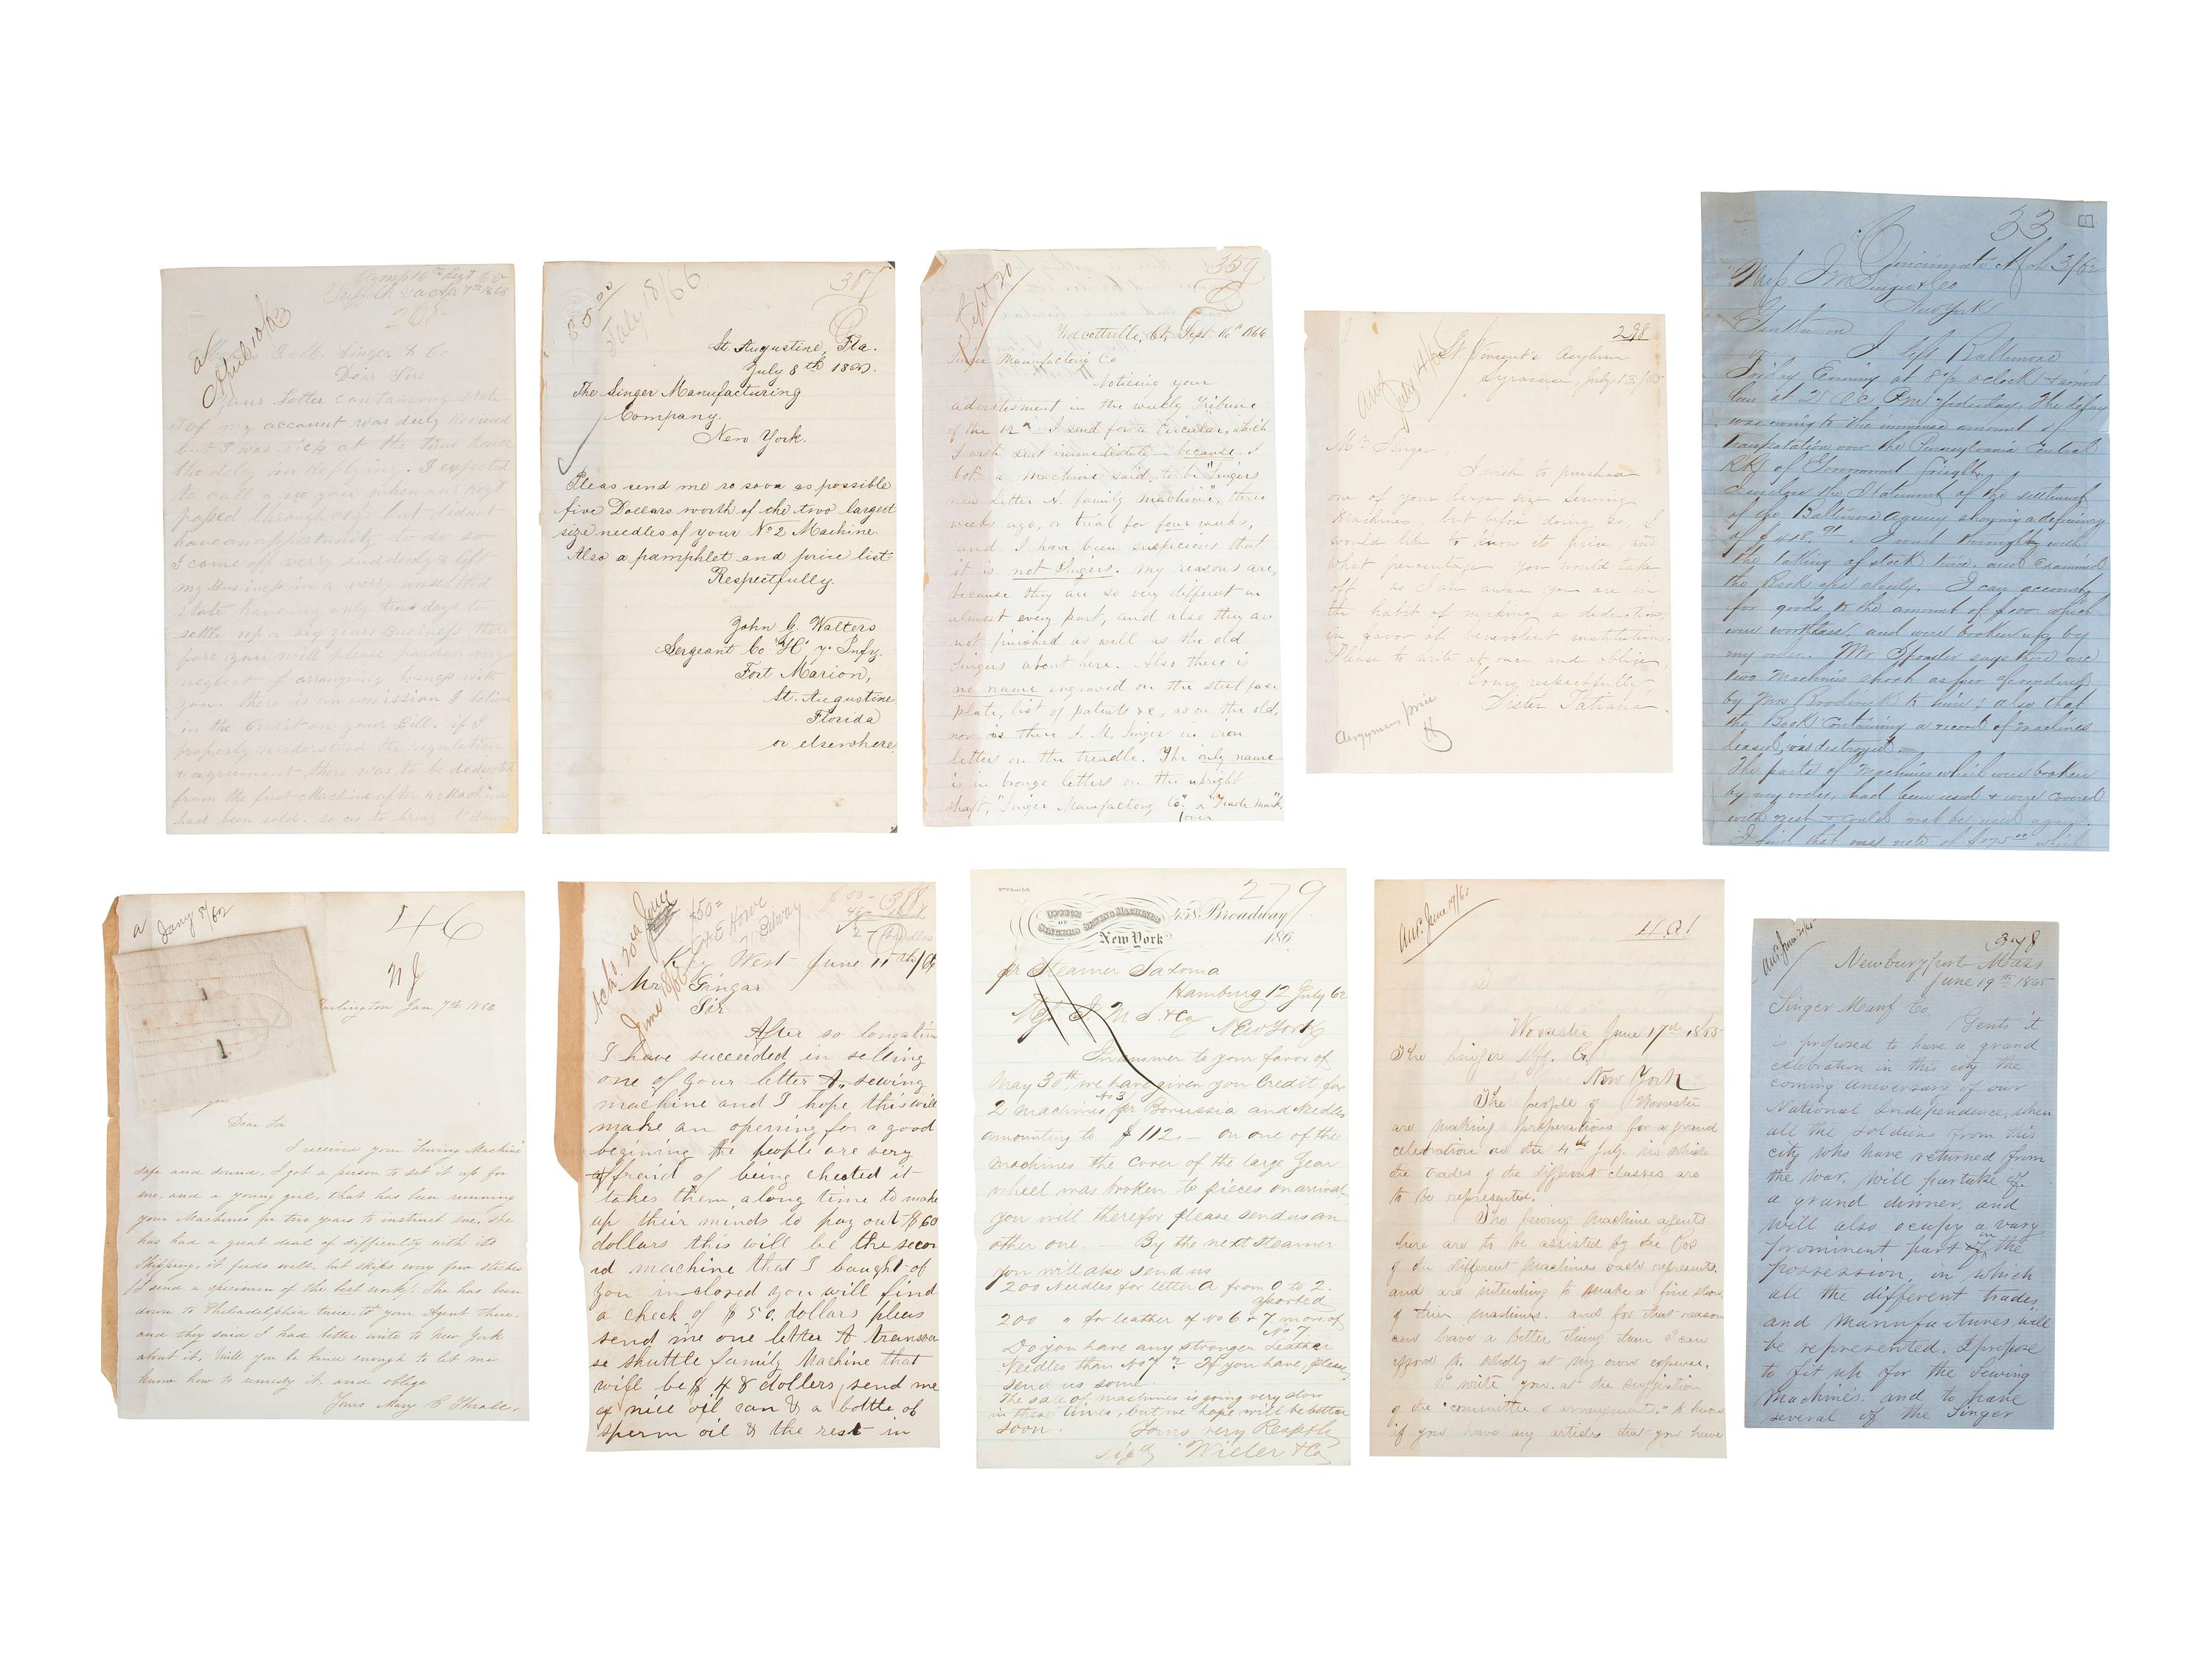 Camp 16th Regt
Suffolk Va Apr 7th 1863
268
a
April 10/63
I. M. Singer & Co
Dear Sirs
Your Letter containing state
of my account was duly Recieved
but I was sick at the time hence
the delay in Replying. I expected
to call & see you when our Regt
passed through N.Y. but did not
have an oppertunity to do so
I came off very suddenly & left
my Business in a very unsettled
state having only days to
settle up a six years Business there
fore you will please pardon my
neglect of arrangeing with
you. there is an omission I believe
in the Credit on your Bill. if I
properly understood the regulation
& agreement there was to be deducted
from the first Machine after 4 Machines
had been sold. so as to bring it down
387
$5.00
July 18/66
St. Augustine, Fla.
July 8th
The Singer Manufacturing
Company.
New York.
Pleas send me so soon as possible
five Dollars worth of the two largest
size needles of your No 2 Machine.
Also a pamphlet and price list
Respectfully.
John G. Walters
Sergeant Co "H" 7 Infy.
Fort Marion,
St. Augustine
Florida
or elsewhere
359
Sept 20
Wolcottville, Ct, Sept. 16th 1866
Singer Manufacturing Co
Noticing your
advertisment in the weekly Tribune
of the 12th I send for a Circular, which
I wish sent immediately because I
bot a machine said to be "Singers
new Letter A. family machine", three
weeks ago, on trial for four weeks,
and I have been suspicious that
it is not Singers. My reasons are,
because they are so very different in
almost every part, and also they are
not finished as well as the old
Singers about here. Also there is
no name engraved on the steel face
plate, list of patents &c, as on the old,
nor is there I. M. Singer in iron
letters on the treadle. The only name
is in bronze letters on the upright
shaft, "Singer Manufactory Co." & "Trade mark".
(over
298
Ans July 14/65
St Vincent's Asylum
Syracuse, July 13/65
Mr Singer,
I wish to purchase
one of your large size sewing
Machines, but before doing so, I
would like to know its price, and
what percentage you would take
off as I am aware you are in
the habit of making a deduction
in favor of benevolent institutions.
Please to write at once and oblige
Yours respectfully
Sister Tatiana.
Clergymens price
33
Cincinnati Mch 3/62
Mess I M Singer & Co
New York
Gentlemen
I left Baltimore
Friday Evening at 8½ oclock & arrived
here at PM yesterday. The delay
was owing to the immense amount of
transportation over the Pennsylvania Central
RR of Government freight.
I enclose the Statement of the settlement
of the Baltimore Agency showing a deficiency
of . I went through with
the taking of stock twice, and examined
the Books closely. I can account
for goods to the amount of $100 which
were worthless, and were broken up by
my order. Mr Sponsler says there are
two Machines short as per rendered
by Mrs Broderick to him; also that
the Book containing a record of machines
leased, was destroyed.
The parts of machines which were broken
by my order, had been used & were covered
with rust & could not be used again.
I find that one note of $175.00 which
a Jany 8/62
46
N J
Burlington Jan 7th 1862
Dear Sir
I receive your Sewing Machine
safe and sound, I got a person to set it up for
me, and a young girl, that has been running
your Machines for two years to instruct me, she
has had a great deal of difficulty with its
skipping, it feeds well, but skips every few stiches
I send a specimen of the best work. She has been
down to Philadelphia twice, to your Agent there,
and they said I had better write to New York
about it. Will you be kind enough to let me
know how to remedy it, and oblige
Yours Mary C Thrale.
388
$50=
E Howe
Bdway
June 18/66
Key West June 11th
Mr Singar
Sir
After so longatim
I have succeeded in selling
one of your letter A. sewing
machine and I hope this will
make an opening for a good
begining the people are very
affreid of being cheated it
takes them along time to make
up their minds to pay out $60
dollars this will be the secon
nd machine that I baught of
you inclosed you will find
a check of $50. dollars pleas
send me one letter A transver
se shuttle family Machine that
will be $48 dollers, send me
a nice oil can & a bottle of
sperm oil & the rest in
279
OFFICE OF SINGERS SEWING MACHINES
458 Broadway
New York 186
pr Steamer Saxonia
Hamburg 12 July 62
Mess I. M S. & Co New York
In answer to your favor of
May 30th, we have given you Credit for
2 machines No 3 pr Borussia and Needles
amounting to $112.— On one of the
machines the cover of the large Gear
wheel was broken to pieces on arrival
you will therefor please send us an
other one. — By the next steamer
you will also send us
200 Needles for letter A from 0 to 2.
assorted
200 " for leather of No 6 & 7 more of
No 7
Do you have any stronger Leather
Needles than No 7? If you have, please
send us some.
The sale of machines is going very slow
in these times, but we hope will be better
soon. Yours very Respectfly
sigd Wieler & Co
Ans. June 19/65
401
Worcester June 17th 1865
The Singer Mfg. Co.
New York
The people of Worcester
are making preparations for a grand
celebration on the 4th July in which
the trades of the different classes are
to be represented.
The Sewing Machine agents
here are to be assisted by the Cos
of the different Machines each represents
and are intending to make a fine show
of their machines. and for that reason
can have a better thing than I can
afford to, wholly at my own expense.
I write you at the suggestion
of the "committee of arrangements." to know
if you have any articles that you have
Ans. June 21/65
348
Newburyport Mass
June 19th 1865
Singer Manf Co.
Gents it
is proposed to have a grand
celebration in this city the
coming aneversary of our
National Independence, when
all the soldiers from this
city who have returned from
the war. will partake of
a grand dinner, and
will also ocupy a very
prominent part in the
possession, in which
all the different trades
and manufactures will
be represented. I propose
to fit up for the Sewing
Machines. and to have
several of the Singer